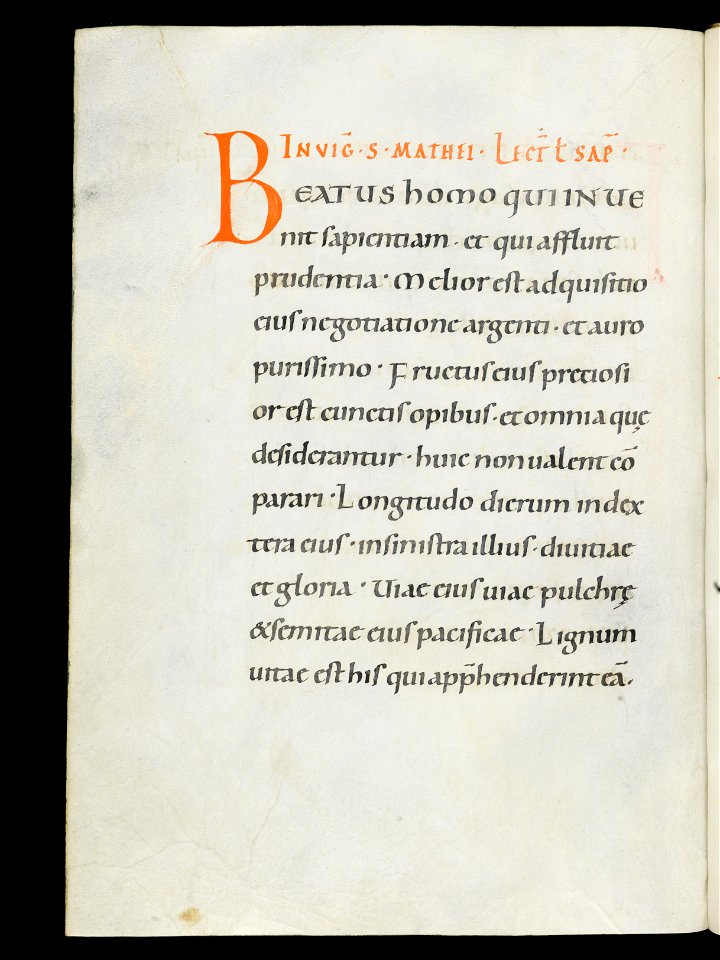 IN VIG̅· S· MATHEI· LECT̅ L̅ SAP̅·
BEATUS homo QUI INUE
nit sapientiam· et qui affluit
prudentia· Melior est adquisitio
eius negotiatione argenti· et auro
purissimo· Fructus eius preciosi
or est cunctis opibus· et omnia quę
desiderantur· huic non ualent cō
parari· Longitudo dierum in dex
tera eius· in sinistra illius· diuitiae
et gloria· Uiae eius uiae pulchrę
& semitae eius pacificae· Lignum
uitae est his qui app̅henderint eā·